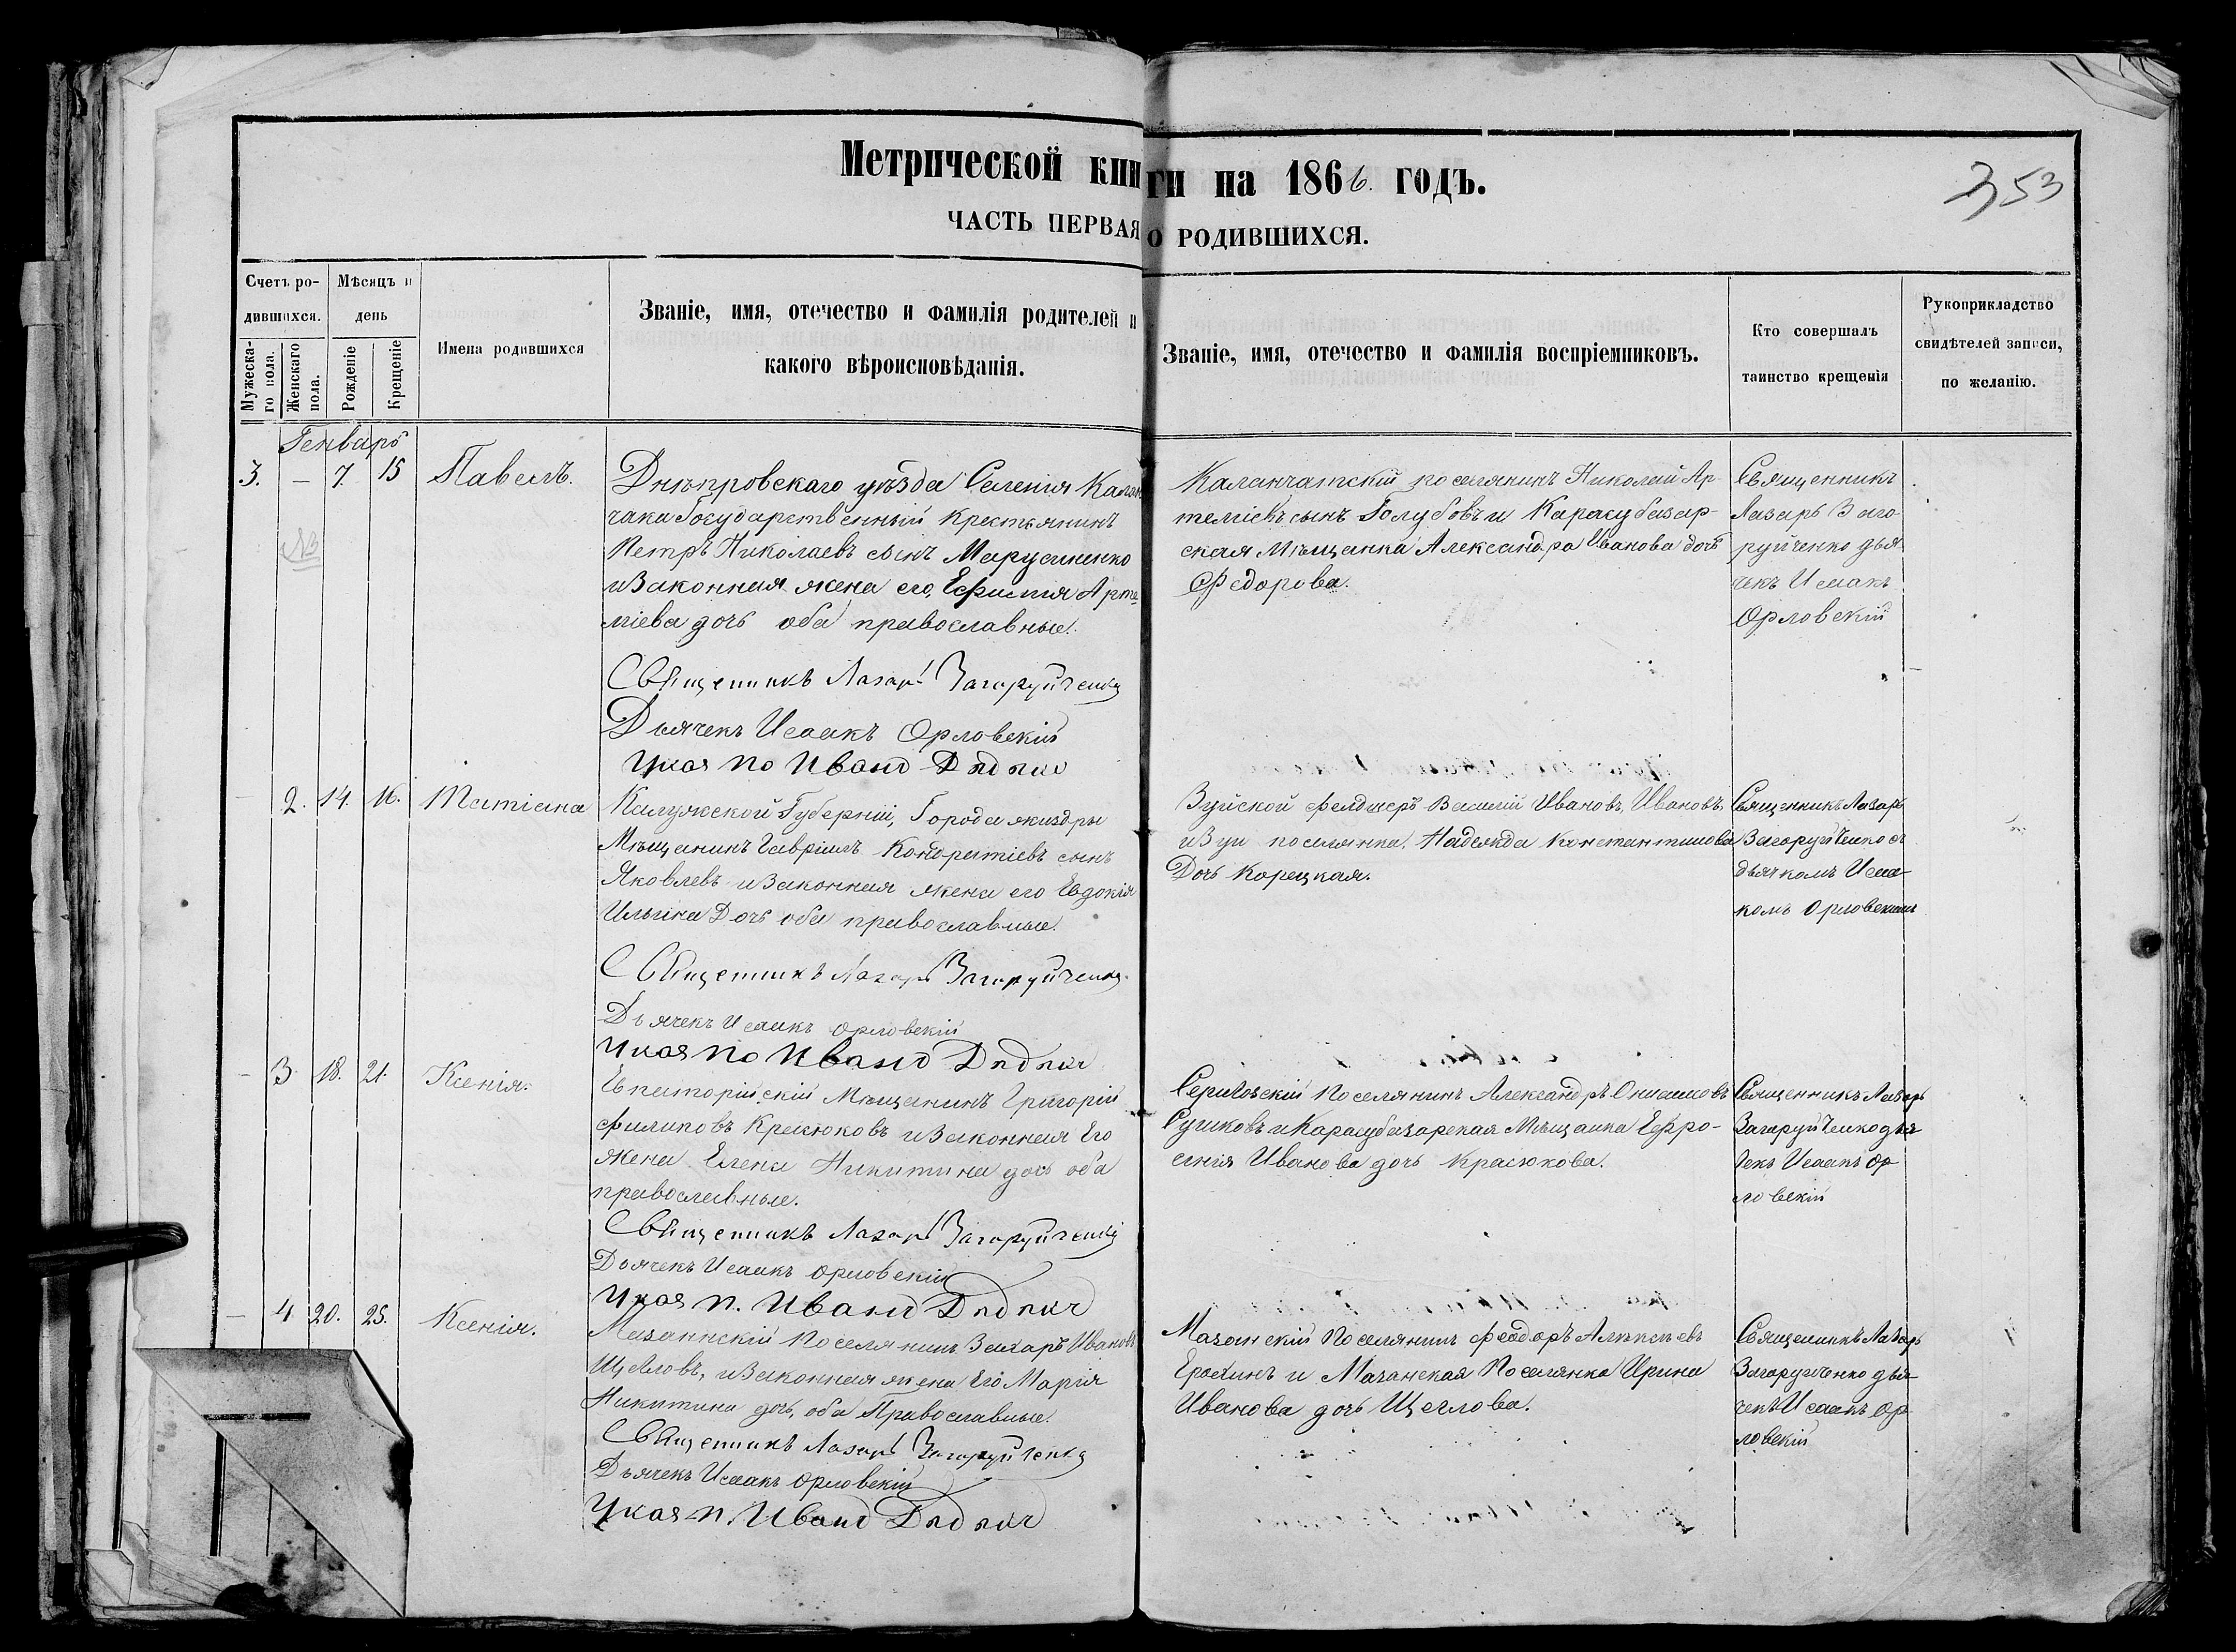 Метрической книги на 1866. годъ.
353
ЧАСТЬ ПЕРВАЯ О РОДИВШИХСЯ.
Счетъ ро-
дившихся.
Мужеска-
го пола.
Женскаго
пола.
Мѣсяцъ и
день
Рожденіе
Крещеніе
Имена родившихся
Званіе, имя, отечество и фамилія родителей и
какого вѣроисповѣданія.
Званіе, имя, отечество и фамилія воспріемниковъ.
Кто совершалъ
таинство крещенія
Рукоприкладство
свидѣтелей записи,
по желанію.
Генварь
3. — 7. 15 Павелъ.
Днѣпровскаго уѣзда Селенія Калан
чака Государственный Крестьянинъ
Петръ Николаевъ сынъ
и Законная жена его, Ефимія Арте
міева дочь оба православные.
Священникъ Лазарь Загоруйченко
Дьячекъ Исаакъ Орловскій
Иванъ
Каланчатскій поселянинъ Николай Ар-
теміевъ сынъ Голубовъ и Карасубазар-
ская Мѣщанка Александра Иванова дочь
Федорова.
Священникъ
Лазарь Заго-
руйченко дья
чекъ Исаакъ
Орловскій
2. 14. 16. Татіана
Калужской Губерніи, Города жиздры
Мѣщанинъ Гавріилъ Кондратіевъ сынъ
Яковлевъ и Законная жена его Евдокія
Ильина Дочь оба православные.
Священникъ Лазарь Загоруйченко
Дьячекъ Исаакъ Орловскій
Иванъ
Зуйской фелдшеръ Василій Ивановъ, Ивановъ
и Зуи поселянка, Надежда Константинова
Дочь Корецкая.
Священникъ Лазарь
Загоруйченко съ
дьячкомъ Исаа-
комъ Орловскимъ
3. 18. 21. Ксенія.
Евпаторійскій Мѣщанинъ Григорій
Филиповъ Красюковъ и Законная Его
жена Елена Никитина дочь оба
православные.
Священникъ Лазарь Загоруйченко
Дьячекъ Исаакъ Орловскій
Иванъ
Поселянинъ Александръ
и Карасубазарская Мѣщанка Ефро-
синія Иванова дочь Красюкова.
Священникъ Лазарь
Загоруйченко дья
чекъ Исаакъ Ор
ловскій
— 4 20. 25. Ксенія.
Мазанскій Поселянинъ Захаръ Ивановъ
Щегловъ, и Законная жена Его Марія
Никитина дочь, оба Православные.
Священникъ Лазарь Загоруйченко
Дьячекъ Исаакъ Орловскій
Иванъ
Мазанскій Поселянинъ Феодоръ Алексѣевъ
Ерохинъ и Мазанская Поселянка Ирина
Иванова дочь Щеглова.
Священникъ Лазарь
Загоруйченко дья-
чекъ Исаакъ Ор
ловскій